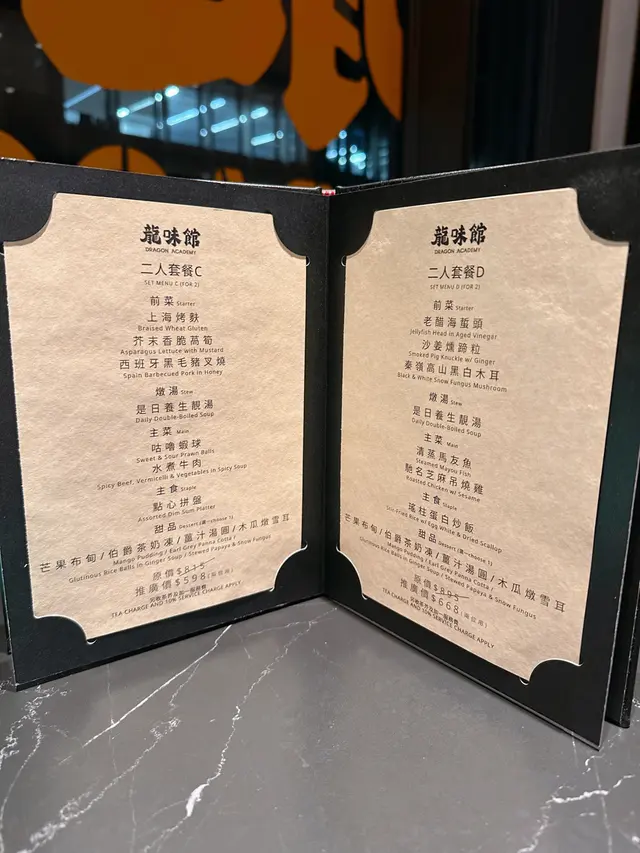 龍味館
DRAGON ACADEMY
二人套餐C
SET MENU C (FOR 2)
前菜 Starter
上海烤麩
Braised Wheat Gluten
芥末香脆萵筍
Asparagus Lettuce with Mustard
西班牙黑毛豬叉燒
Spain Barbecued Pork in Honey
燉湯 Stew
是日養生靚湯
Daily Double-Boiled Soup
主菜 Main
咕嚕蝦球
Sweet & Sour Prawn Balls
水煮牛肉
Spicy Beef, Vermicelli & Vegetables in Spicy Soup
主食 Staple
點心拼盤
Assorted Dim Sum Platter
甜品 Dessert (選一choose 1)
芒果布甸/伯爵茶奶凍/薑汁湯圓/木瓜燉雪耳
Mango Pudding / Earl Grey Panna Cotta /
Glutinous Rice Balls in Ginger Soup / Stewed Papaya & Snow Fungus
原價$815
推廣價$598
另收茶芥及加一服務費
TEA CHARGE AND 10% SERVICE CHARGE APPLY
龍味館
DRAGON ACADEMY
二人套餐D
SET MENU D (FOR 2)
前菜 Starter
老醋海蜇頭
Jellyfish Head in Aged Vinegar
沙姜燻蹄粒
Smoked Pig Knuckle w/ Ginger
秦嶺高山黑白木耳
Black & White Snow Fungus Mushroom
燉湯 Stew
是日養生靚湯
Daily Double-Boiled Soup
主菜 Main
清蒸馬友魚
Steamed Mayou Fish
馳名芝麻吊燒雞
Roasted Chicken w/ Sesame
主食 Staple
瑤柱蛋白炒飯
Stir-Fried Rice w/ Egg White & Dried Scallop
甜品 Dessert (選一choose 1)
芒果布甸/伯爵茶奶凍/薑汁湯圓/木瓜燉雪耳
Mango Pudding / Earl Grey Panna Cotta /
Glutinous Rice Balls in Ginger Soup / Stewed Papaya & Snow Fungus
原價$895
推廣價$668
另收茶芥及加一服務費
TEA CHARGE AND 10% SERVICE CHARGE APPLY